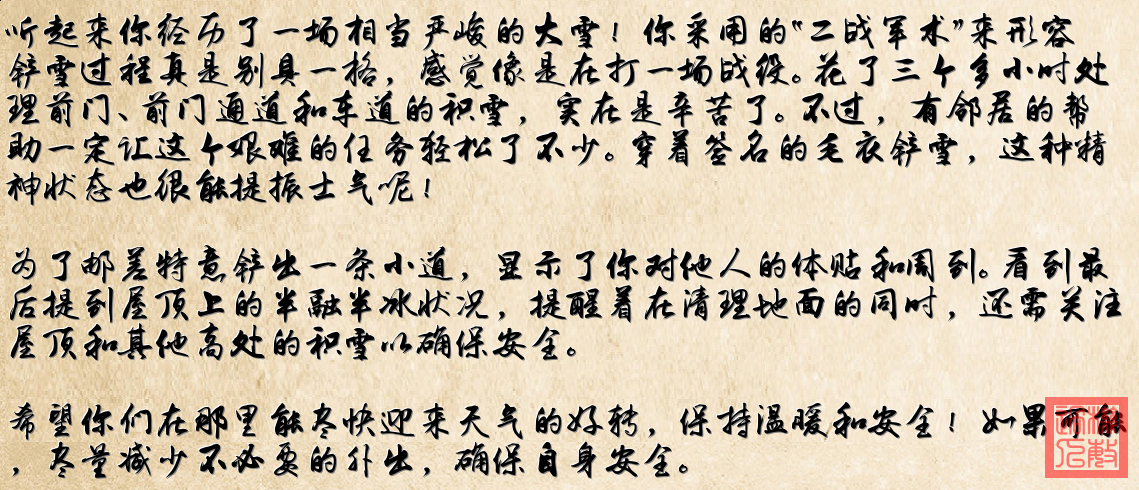 听起来你经历了一场相当严峻的大雪！你采用的“二战军术”来形容
铲雪过程真是别具一格，感觉像是在打一场战役。花了三个多小时处
理前门、前门通道和车道的积雪，实在是辛苦了。不过，有邻居的帮
助一定让这个艰难的任务轻松了不少。穿着签名的毛衣铲雪，这种精
神状态也很能提振士气呢！
为了邮差特意铲出一条小道，显示了你对他人的体贴和周到。看到最
后提到屋顶上的半融半冰状况，提醒着在清理地面的同时，还需关注
屋顶和其他高处的积雪以确保安全。
希望你们在那里能尽快迎来天气的好转，保持温暖和安全！如果可能
，尽量减少不必要的外出，确保自身安全。